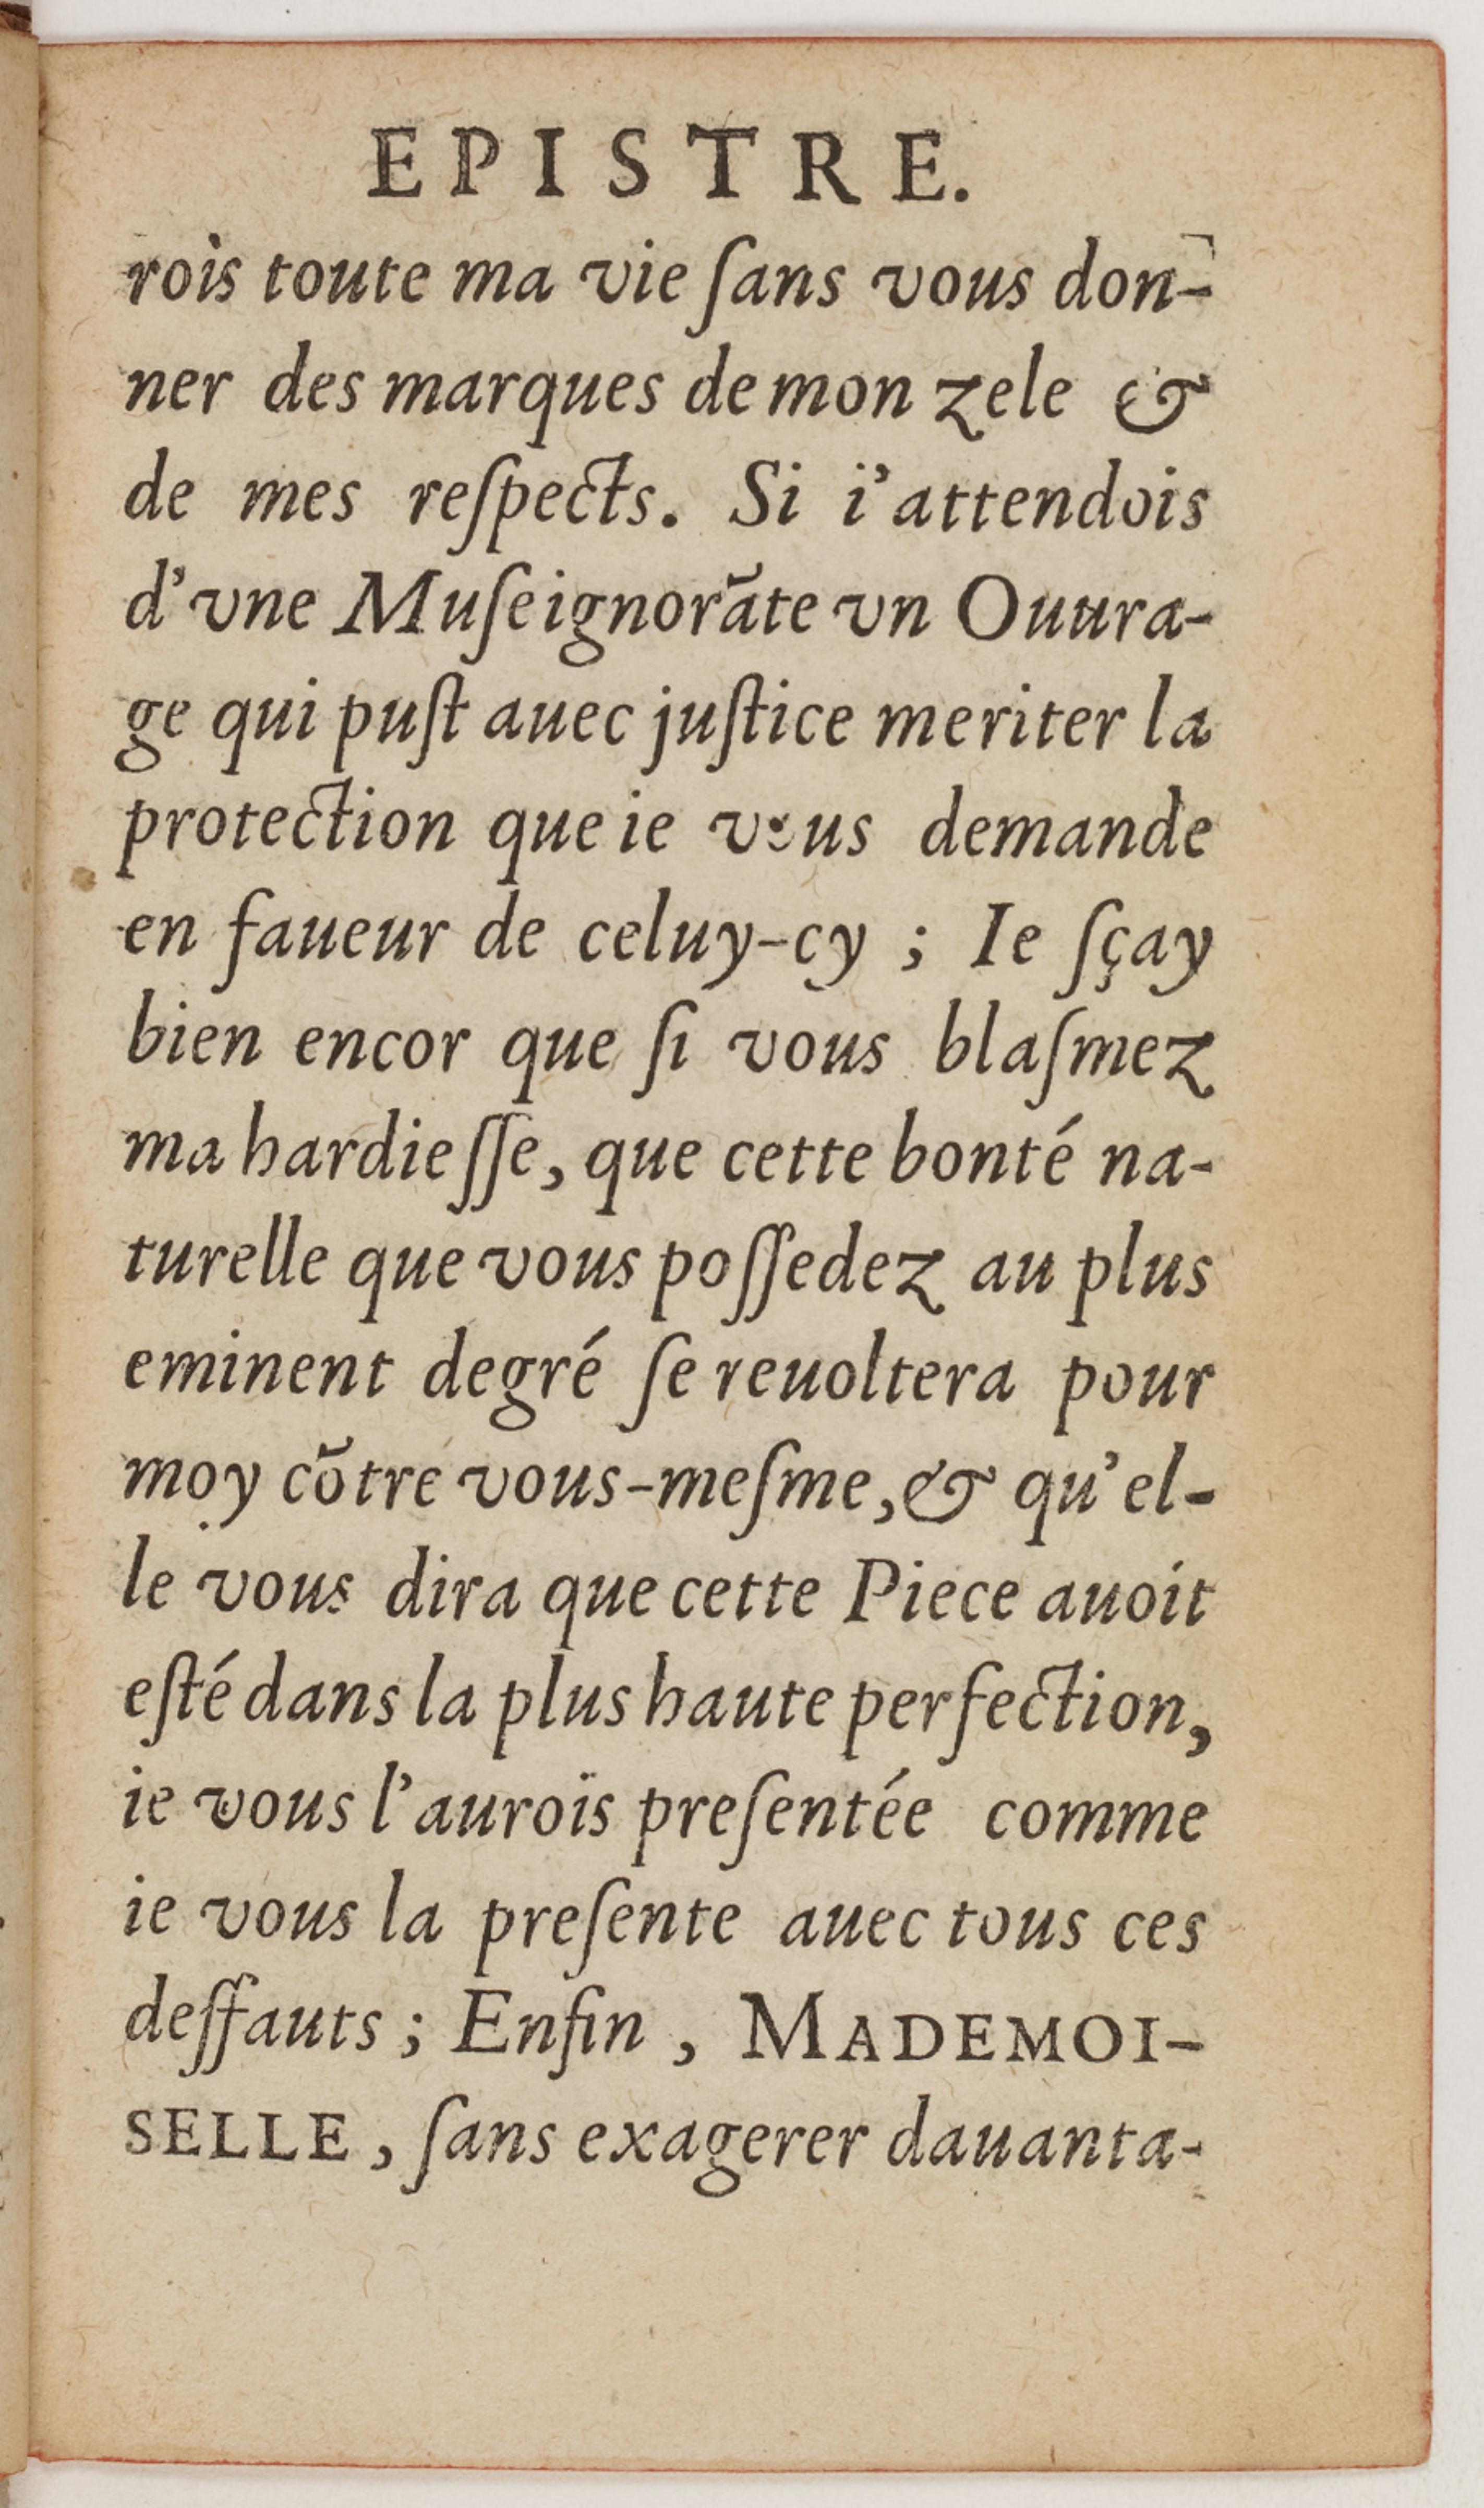 EPISTRE.
rois toute ma vie ſans vous don-
ner des marques de mon zele &
de mes reſpects. Si i'attendois
d'vne Muſe ignorãte vn Ouura-
ge qui puſt auec juſtice meriter la
protection que ie vous demande
en faueur de celuy-cy ; Ie ſçay
bien encor que ſi vous blaſmez
ma hardieſſe, que cette bonté na-
turelle que vous poſſedez au plus
eminent degré ſe reuoltera pour
moy cõtre vous-meſme, & qu'el-
le vous dira que cette Piece auoit
eſté dans la plus haute perfection,
ie vous l'auroïs preſentée comme
ie vous la preſente auec tous ces
deffauts ; Enfin , MADEMOI-
SELLE , ſans exagerer dauanta-